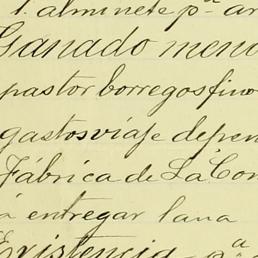 1. alminete p.ª ar
Ganado meno
pastor borregos fino
gastos viaje depen
Fábrica de La Con
á entregar lana
Existencia p.ª